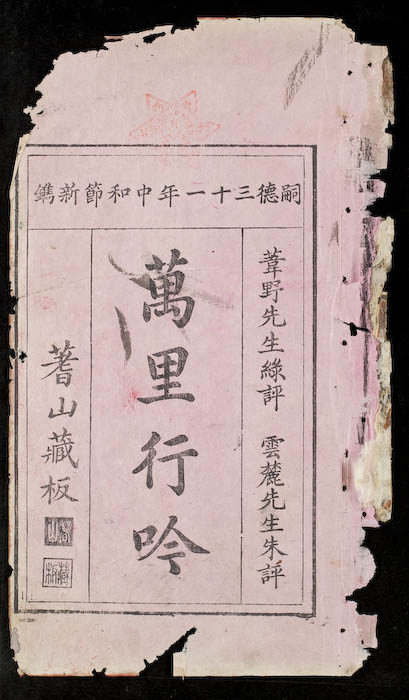 嗣德三十一年中和節新鐫
葦野先生綠評 雲麓先生朱評
萬里行吟
蓍山藏板